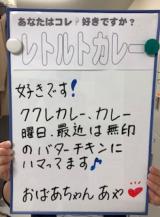 あなたはコレ！好きですか？
レトルトカレー
好きです!
ククレカレー、カレー
曜日、最近は無印
のバターチキンに
ハマってます♪
おばあちゃん あや♥